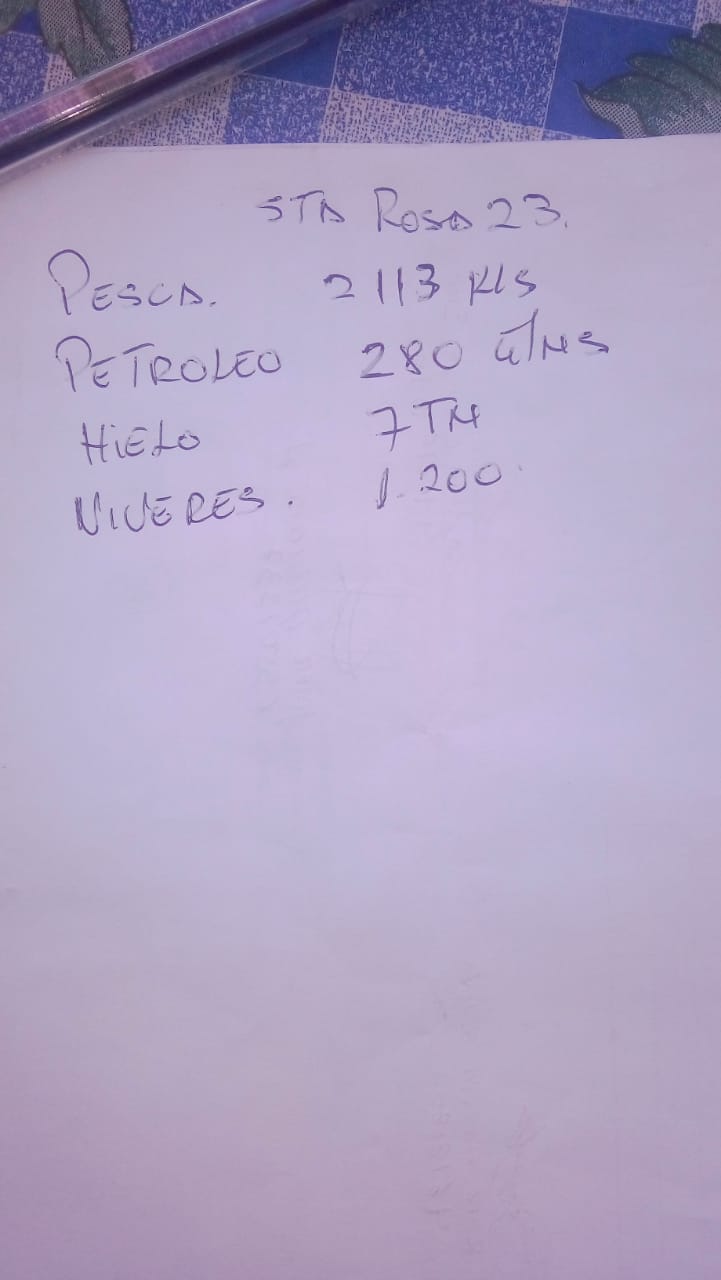 STA ROSA 23.
PESCA. 2113 KLS
PETROLEO 280 G/NS
HIELO 7 TM
VIVERES. 1.200.